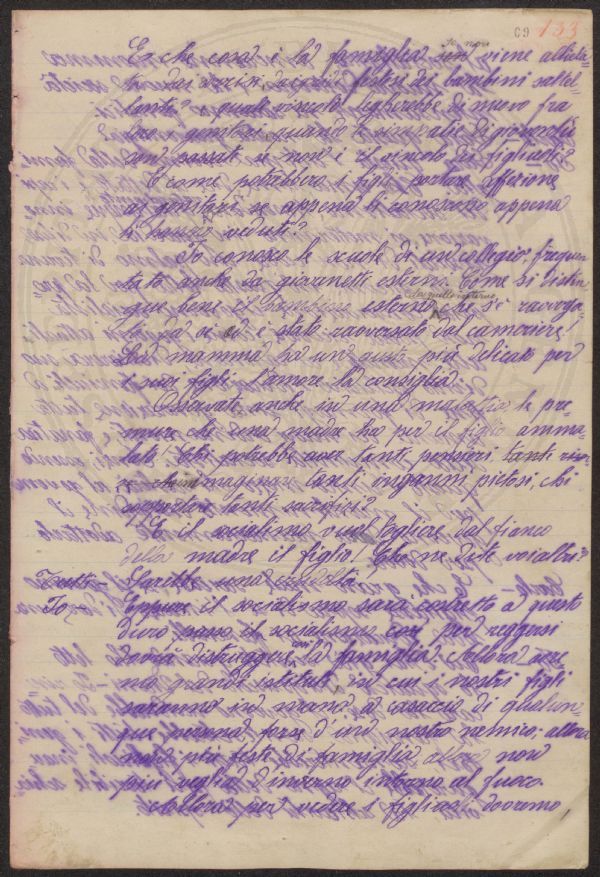 69 133
Io non
Ed che cosa è la famiglia se non viene allieta-
ta dai sorrisi, dai festosi dei bambini saltel-
lanti? e quale vincolo legherebbe di nuovo fra
loro i genitori quando le simpatie di gioventù
son passate se non è il vincolo dei figliuoli?
E come potrebbero i figli portare affezione
ai genitori se appena li conoscono appena
li hanno veduti?
Io conosco le scuole di un collegio, frequen
tato anche da giovanetti esterni. Come si distin
gue bene il bambino esterno da quello interno che si è ravvia-
to da sé od è stato ravversato dal cameriere!
La mamma ha un gusto più delicato per
i suoi figli: l'amore la consiglia.
Osservate anche in una malattia le pre-
mure che una madre ha per il figlio amma-
lato! Chi potrebbe aver tanti pensieri tanti
immaginare tanti inganni pietosi, chi
sopportare tanti sacrifici?
E il socialismo vuol togliere dal fianco
della madre il figlio! Che ne dite voialtri?
Tutti - Sarebbe una crudeltà.
Io - Eppure il socialismo sarà costretto a questo
duro passo, il socialismo così per reggersi
dovrà distruggere la famiglia. Allora sare
mo grandi istituti in cui i nostri figli
saranno in mano a casaccio di qualun-
que persona forse d'un nostro nemico: allora
non più feste di famiglia allora non
più veglie d'inverno intorno al fuoco.
Allora per vedere i figliuoli dovremo,